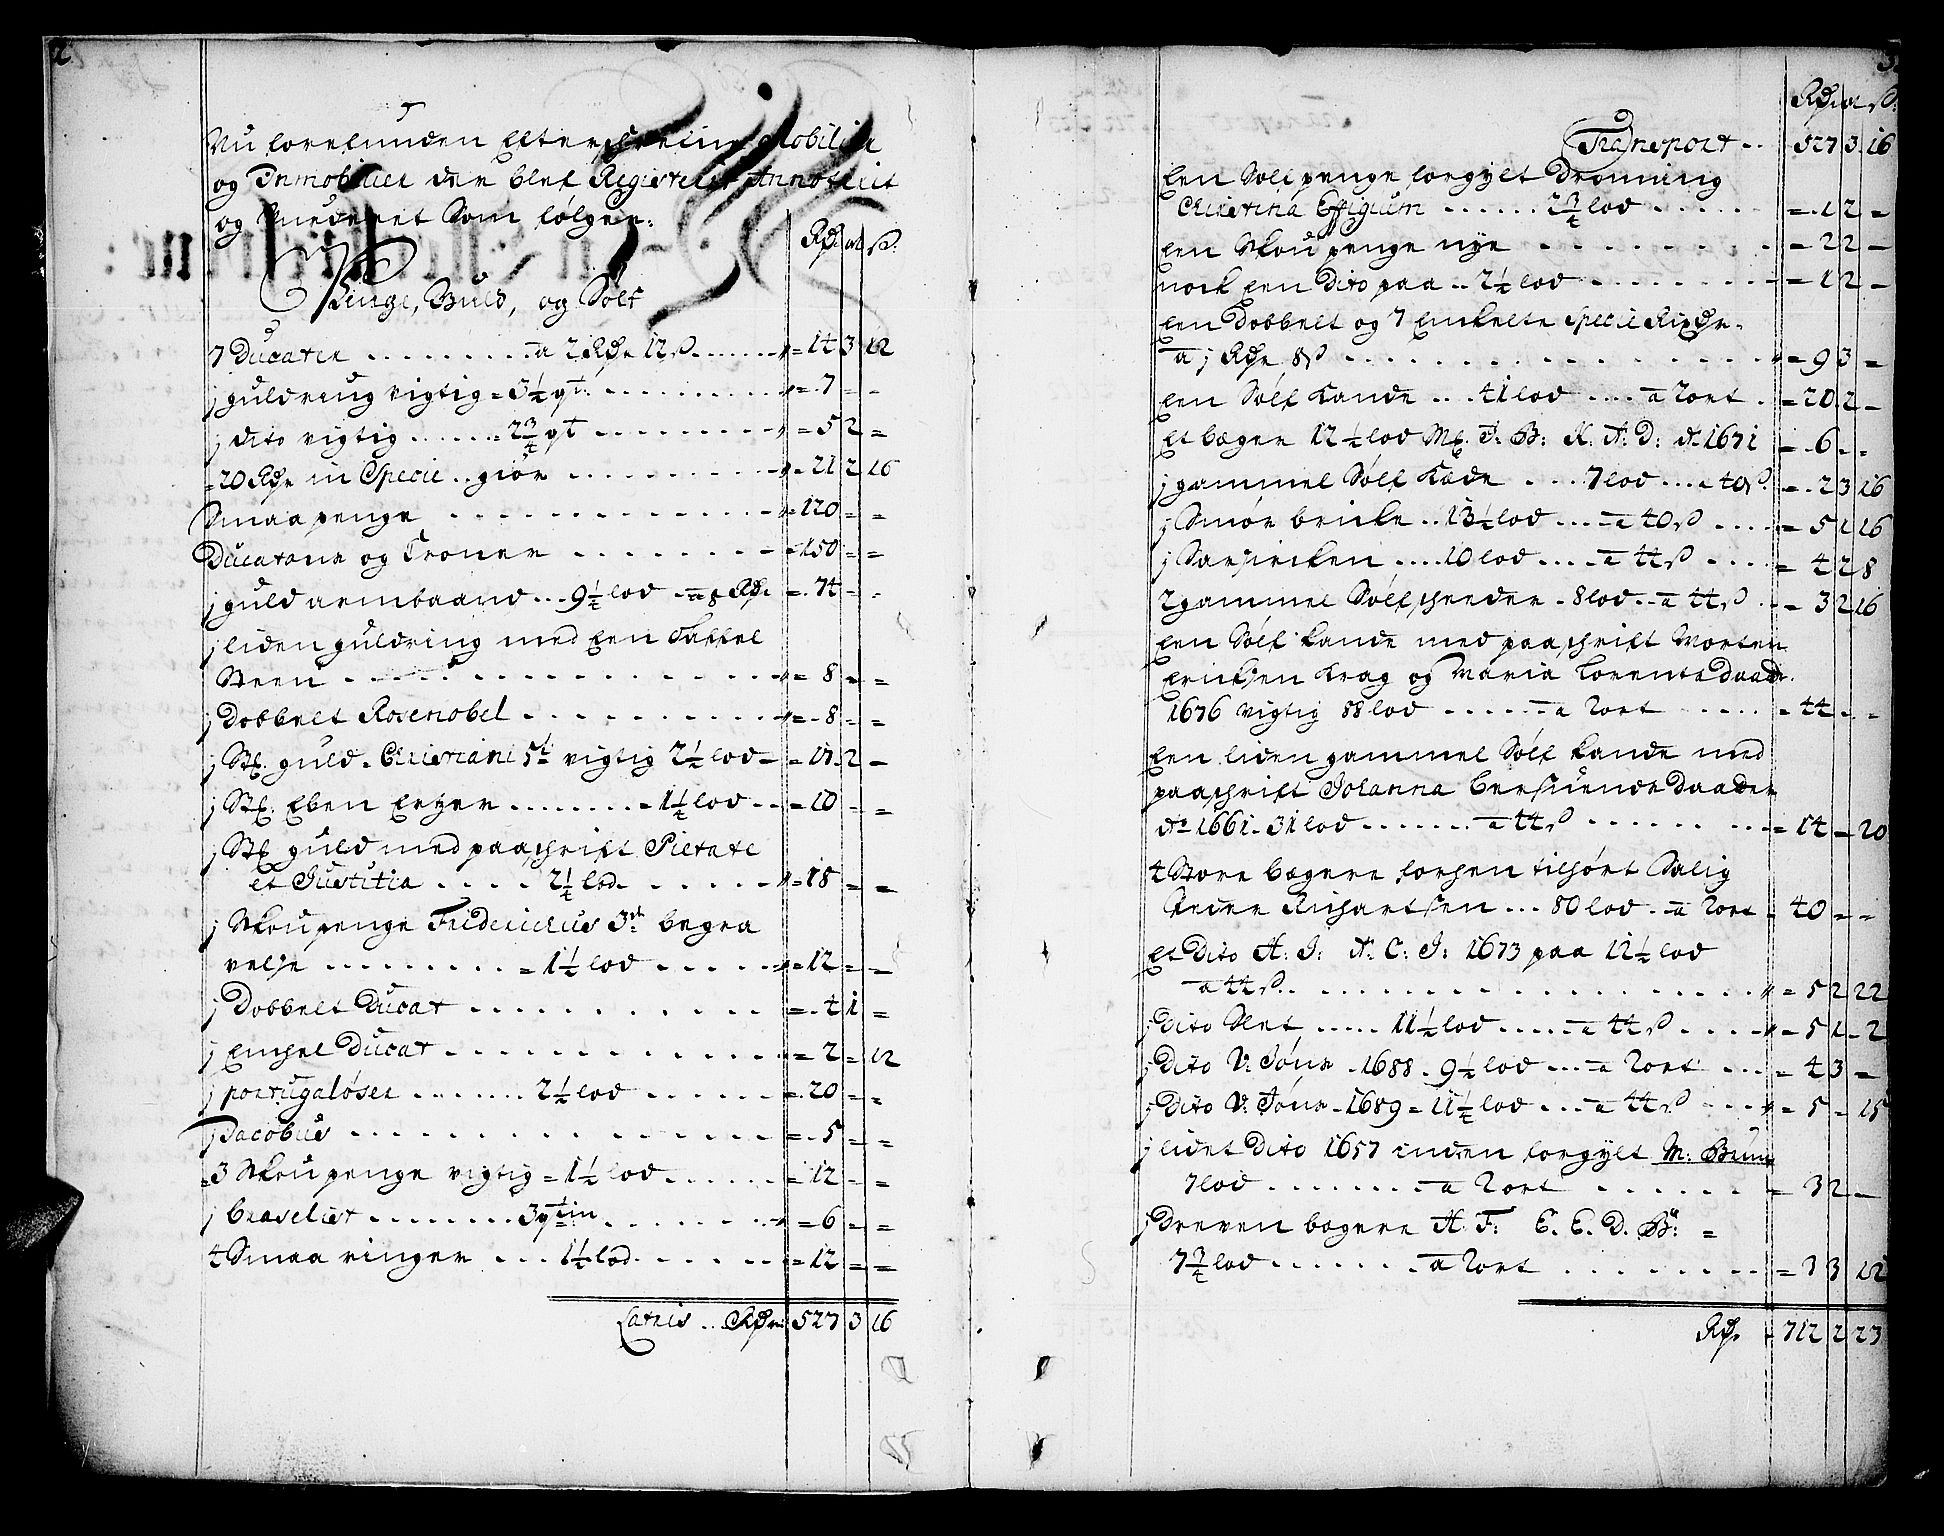 2
Nu forefunden Efterschrefne Mobilier
og Inmobilier der blef Registeret Annoterit
og Vurderet Som følger:
Rdr ort ß.
Penge, Guld, og Sølf
7 Ducater ......... a 2 Rdr 12 ß ...... = 14 3 12
j guldring vigtig = 3½ qt. ......... = 7 - -
j dito vigtig ...... = 2¾ qt ......... = 5 2 =
=20 Rdr in Specie .. giør ......... = 21 2 16
Smaa penge ............ = 120 - -
Ducatoner og Croner ....... = 150 - =
j guld armbaand ... 9¼ lod . a 8 Rdr = 74 - -
j liden guldring med een Taffel
Steen ............ = 8 - =
j Dobbelt Rosenobel ......... = 8 - =
j St. guld. Christiani 5ti vigtig 2½ lod = 17 2 -
j St. Eben Ezer ........ 1¼ lod .. = 10 - =
j St. guld med paaschrift Pietate
et Justitia .... 2¼ lod ...... = 18 = =
j Skoupenge Fredericus 3die begra
velse ........ = 1½ lod ..... = 12 = =
j Dobbelt Ducat ......... = 4 1 =
j Enchel Ducat ......... = 2 = 12
j portugaløser ....... 2½ lod ..... = 20 - =
j Jacobus ............ = 5 - =
=3 Skoupenge vigtig = 1½ lod ...... = 12 - =
j Craselist ........ 3 qtin ....... = 6 - =
4 Smaa ringer ... 1½ lod ...... = 12 = =
Latris .. Rdr 527 3 16
3
Rdr ort ß:
Transport .. 527 3 16
Een Sølf penge forgylt Droning
Christina Effigium ...... 2¾ lod ...... = 1 2 =
Een Skou penge nye ......... = 2 2 -
nock een Dito paa .. 2½ lod ........ = 1 2 -
Een Dobbelt og 7 Enckelte Specie Rixdr.
a j Rdr 8 ß ............ = 9 3 -
Een Sølf Kande ... 41 lod .... a 2 ort . = 20 2 -
Et bæger 12½ lod M. J: B: K: A: D: Ao 1671 = 6 - -
j gammel Sølf Kæde .... 7 lod ... a 40 ß. = 2 3 16
j Smør bricke .. 13½ lod ... a 40 ß .... = 5 1 16
j ..... 10 lod .... a 44 ß .... = 4 2 8
2 gammel Sølf scheeder . 8 lod .. a 44 ß .. = 3 2 16
Een Sølf Kande med paaschrift Morten
Erichsen Krag og Maria Lorents Daatr.
1676 vigtig 88 lod ...... a 2 ort ...... = 44 - -
Een liden gammel Sølf Kande med
paaschrift Johanna Berfuends Daatter
Ao 1661. 31 lod ....... a 44 ß ......... = 14 - 20
4 Store bægere forhen tilhørt Salig
Peder Richartsen ... 80 lod . a 2 ort = 40 = =
Et Dito A: J: A: C: J: 1673 paa 12½ lod
a 44 ß ............... = 5 2 22
j Dito Slet ..... 11½ lod ..... a 44 ß .... = 5 1 2
j Dito V: Jons . 1688 . 9½ lod ... a 2 ort ... = 4 3 =
j Dito V: Jons . 1689 = 11¼ lod ... a 44 ß ... = 5 - 15
j lidet Dito 1657 inden forgylt M: Brun
7 lod ........ a 2 ort ...... = 3 2 -
j Dreven bægere A. F: E. E. D. B: =
7¾ lod ........ a 2 ort ........ = 3 3 12
Rdr = 712 2 23